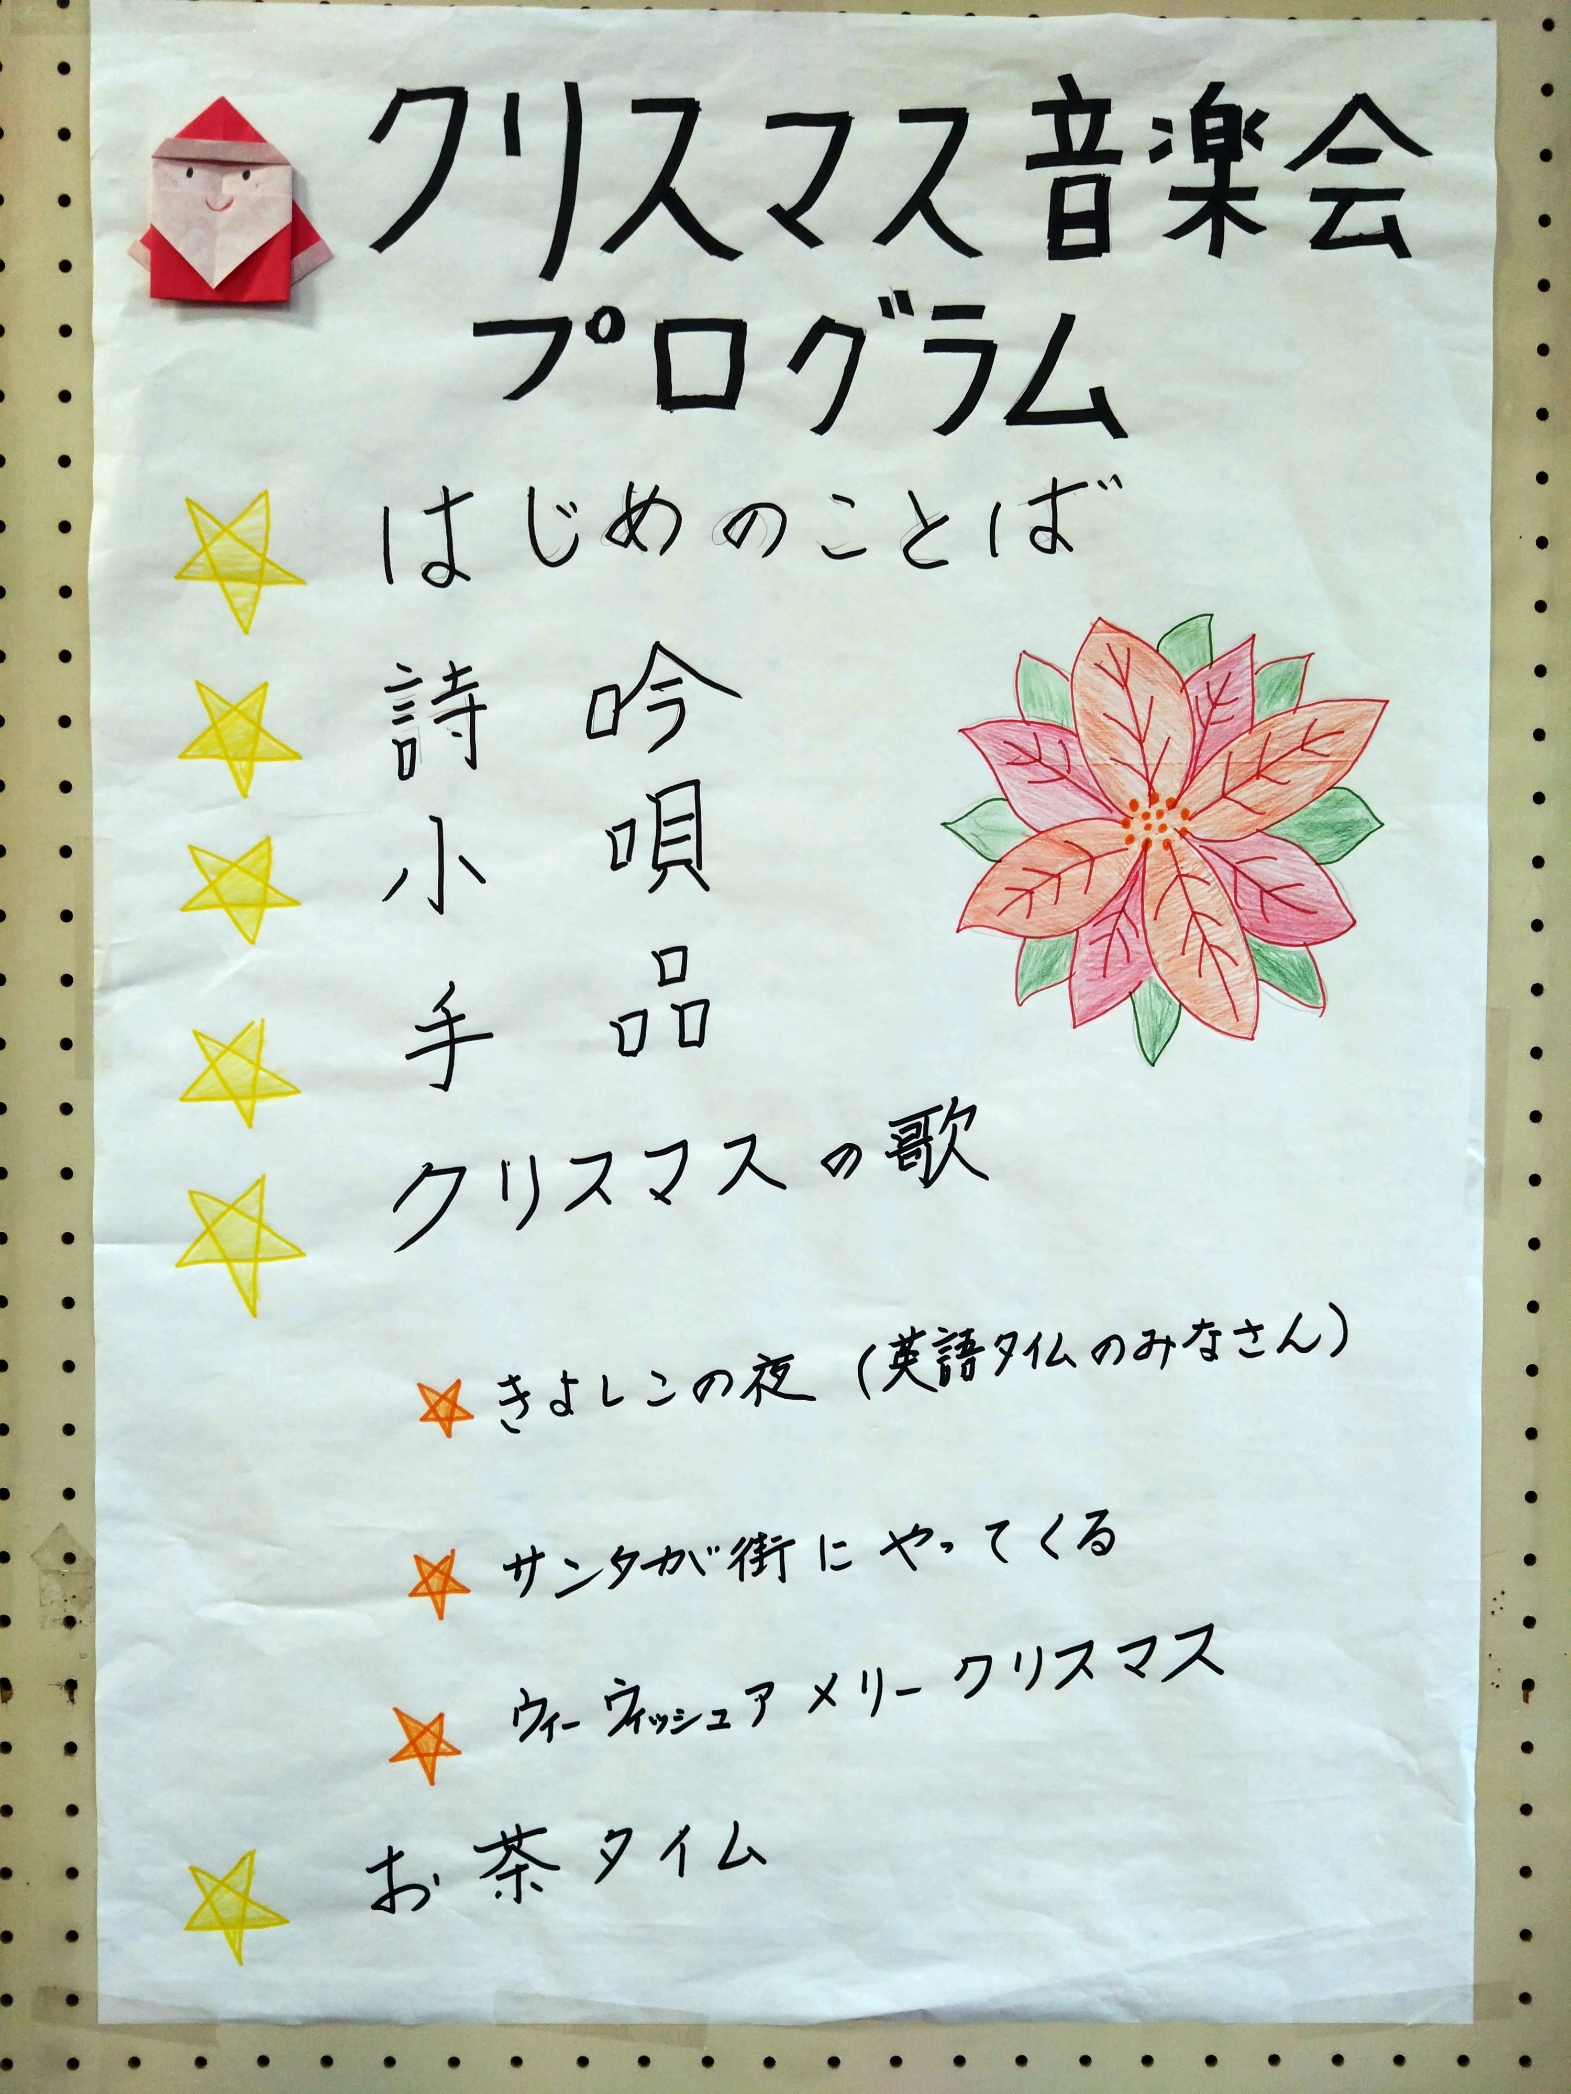 クリスマス音楽会
プログラム
はじめのことば
詩吟
小唄
手品
クリスマスの歌
きよしこの夜（英語タイムのみなさん）
サンタが街にやってくる
ウィーウィッシュアメリークリスマス
お茶タイム